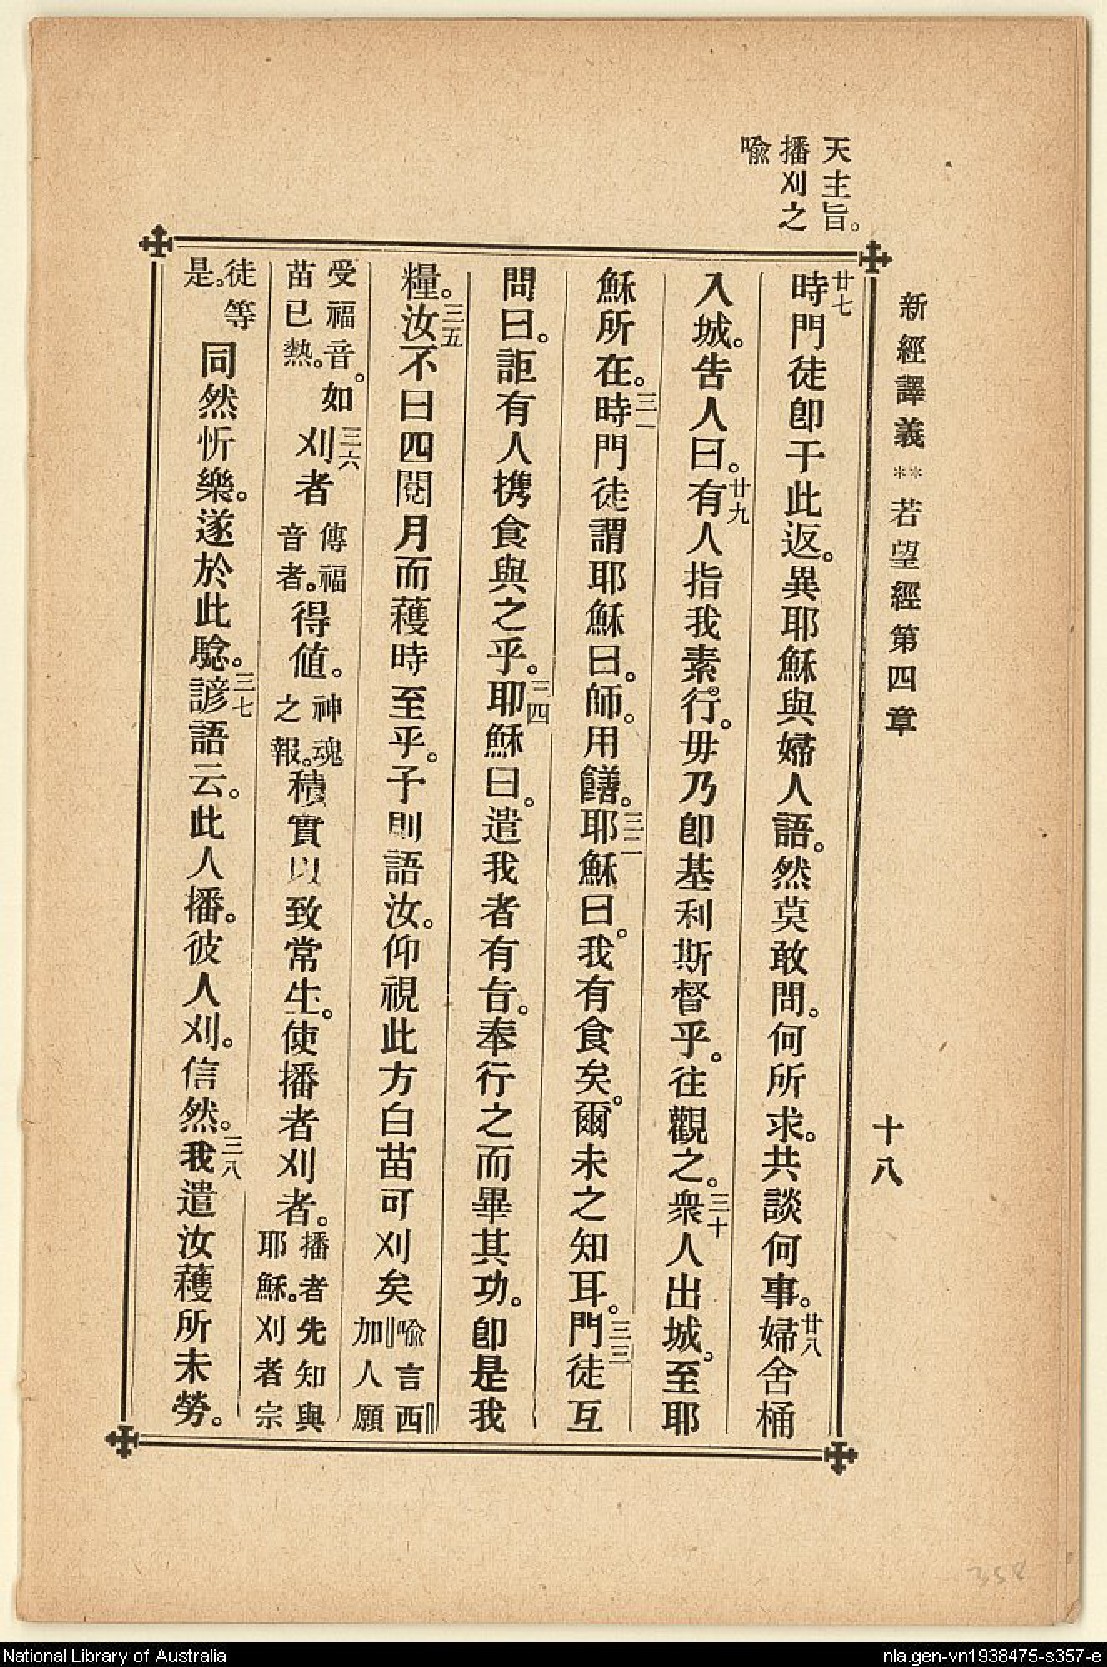 天主旨。
播刈之
喩
新經譯義**若望經第四章 十八
廿七時門徒卽于此返。異耶穌與婦人語。然莫敢問。何所求。共談何事。廿八婦舍桶
入城。吿人曰。廿九有人指我素行。毋乃卽基利斯督乎。往觀之。三十衆人出城。至耶
穌所在。三一時門徒謂耶穌曰。師。用饍。三二耶穌曰。我有食矣。爾未之知耳。三三門徒互
問曰。詎有人携食與之乎。三四耶穌曰。遣我者有旨。奉行之而畢其功。卽是我
糧。三五汝不曰四閱月而穫時至乎。予則語汝。仰視此方白苗可刈矣喩言西加人願
受福音。如苗已熱。三六刈者傳福音者。得値。神魂之報。積實以致常生。使播者刈者。播者先知與耶穌。刈者宗
徒等是。同然忻樂。遂於此騐。三七諺語云。此人播。彼人刈。信然。三八我遣汝穫所未勞。
358
National Library of Australia
nla.gen-vn1938475-s357-e